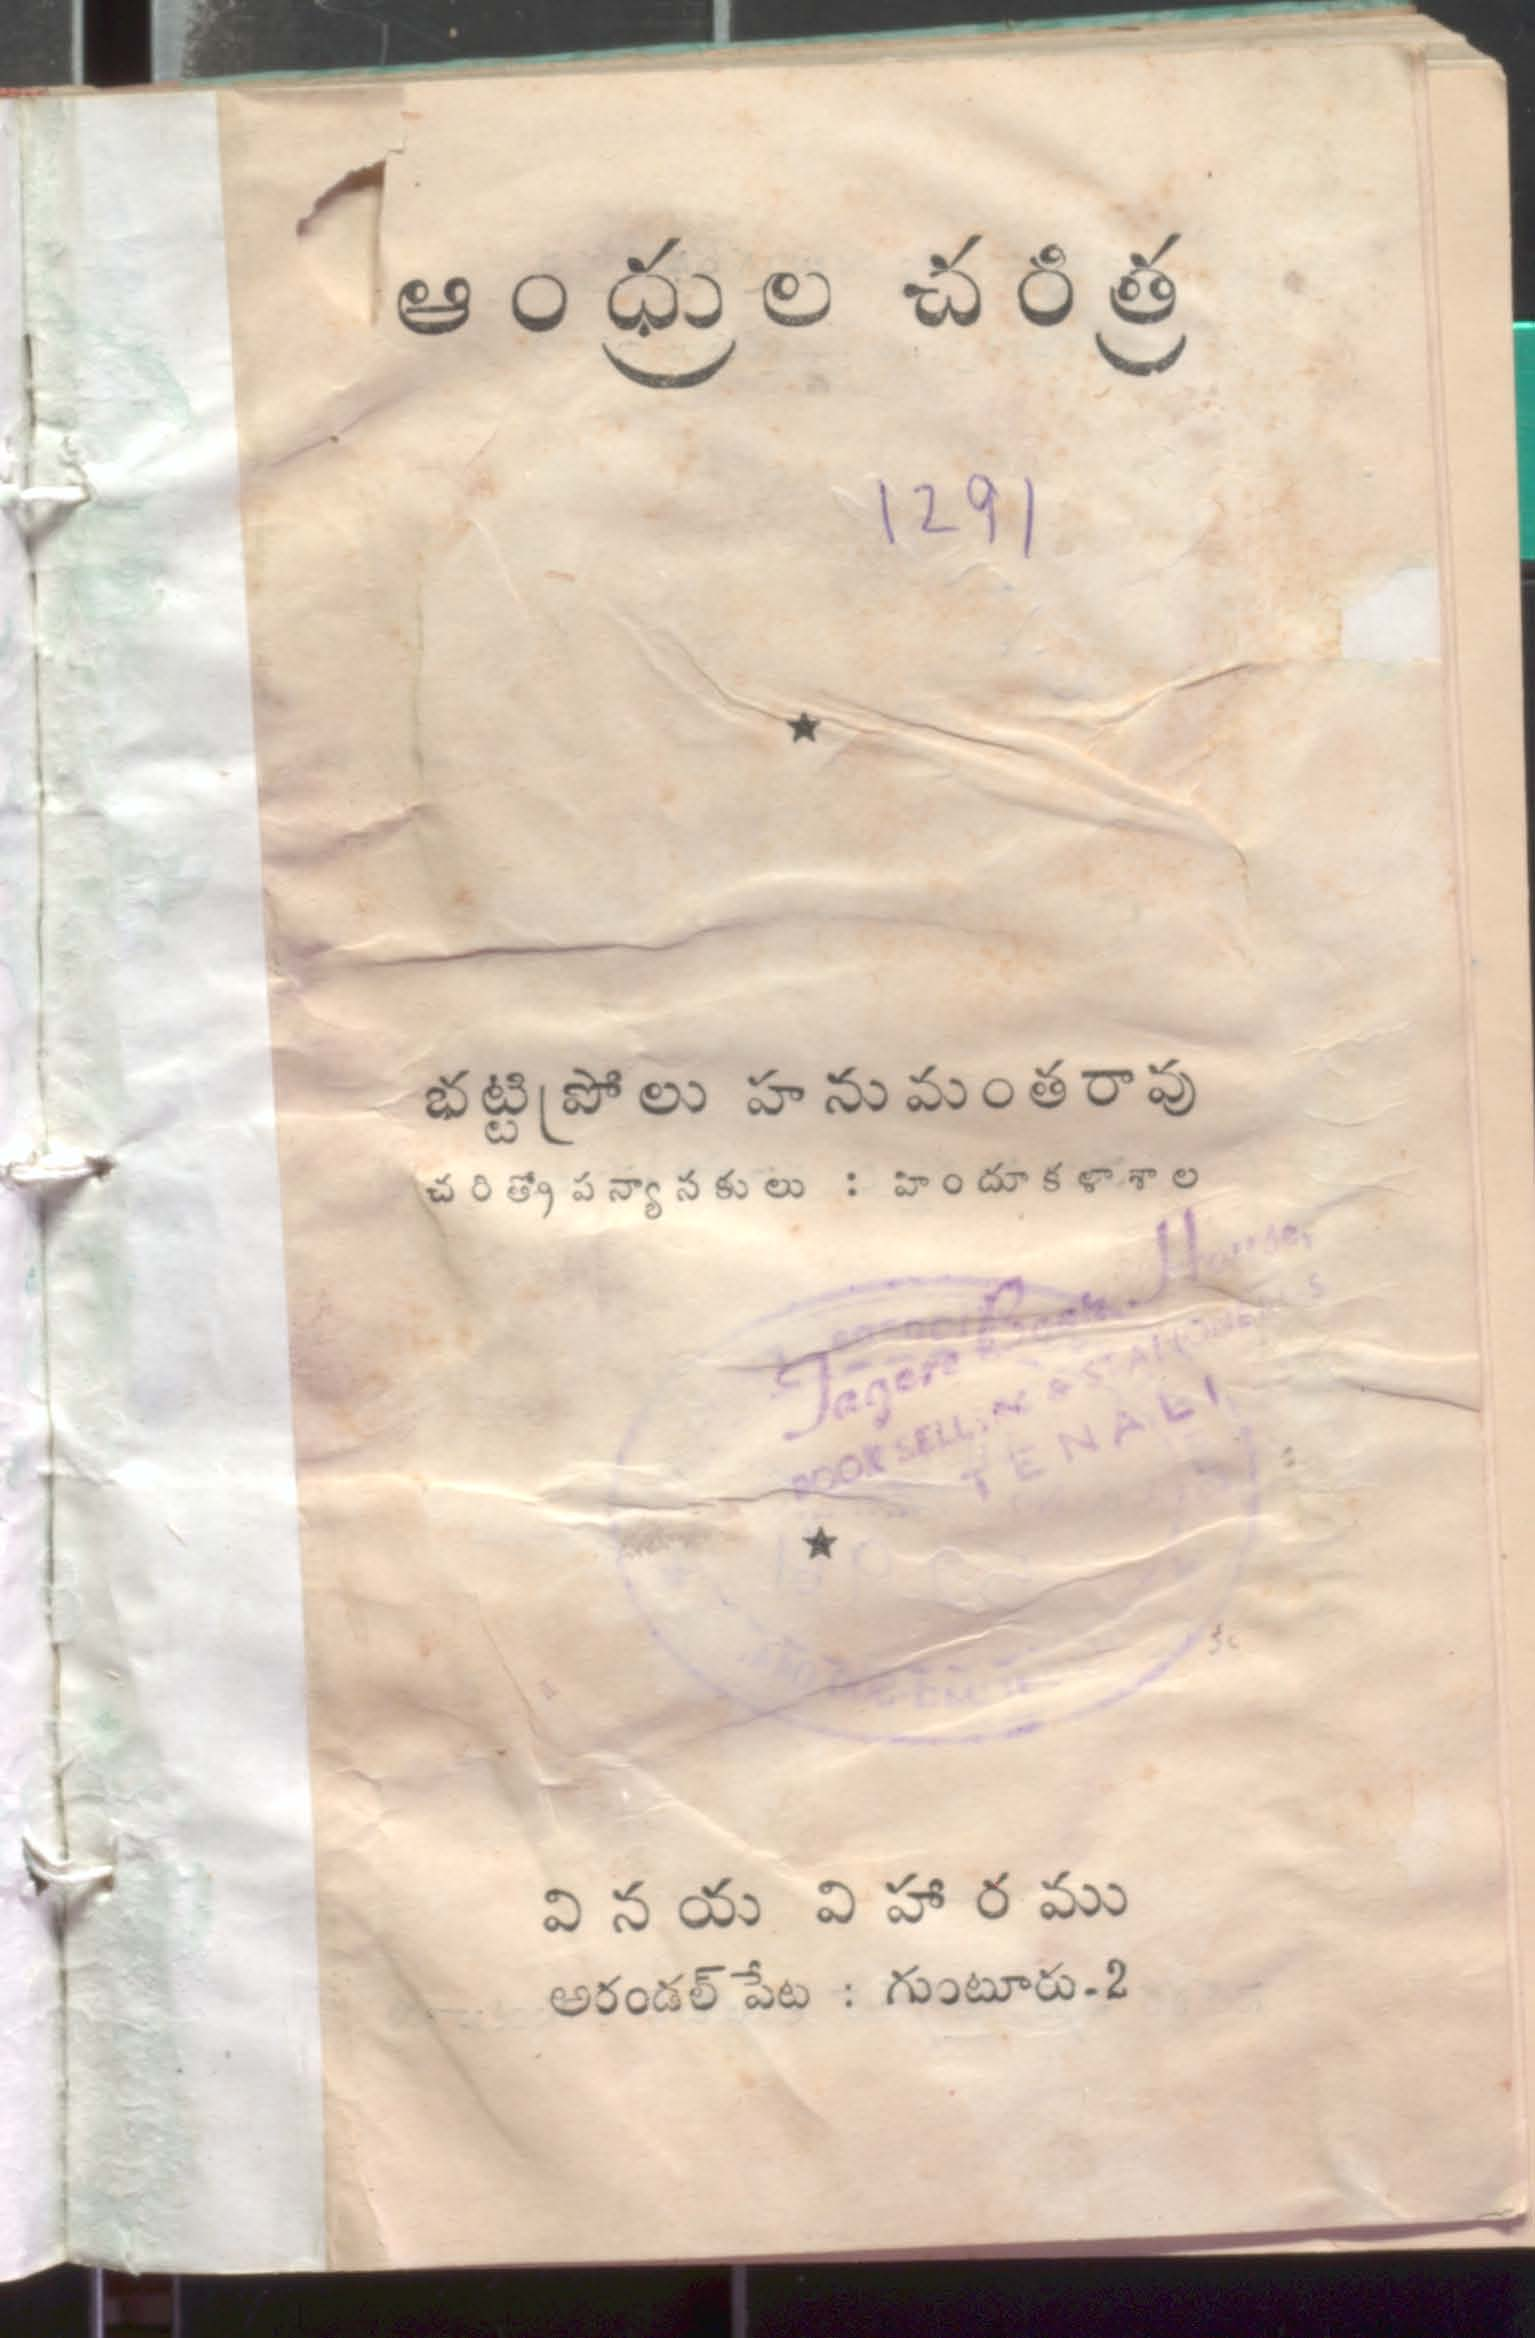 ఆంధ్రుల చరిత్ర
1291
★
భట్టిప్రోలు హనుమంతరావు
చరిత్రోపన్యాసకులు : హిందూకళాశాల
Tagore Book House,
BOOK SELLERS & STATIONERS
TENALI
★
వినయ విహారము
అరండల్ పేట : గుంటూరు-2